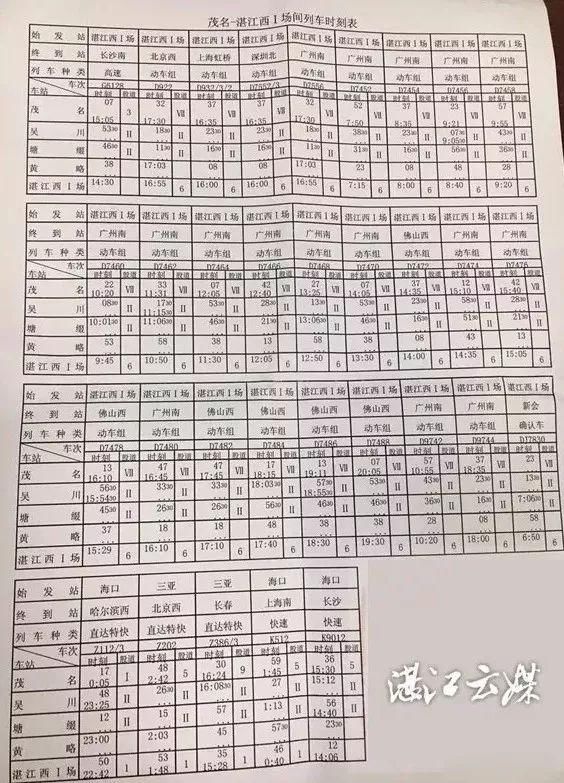 茂名-湛江西Ⅰ场间列车时刻表
始发站 湛江西Ⅰ场 湛江西Ⅰ场 湛江西Ⅰ场 湛江西Ⅰ场 湛江西Ⅰ场 湛江西Ⅰ场 湛江西Ⅰ场 湛江西Ⅰ场 湛江西Ⅰ场
终到站 长沙南 北京西 上海虹桥 深圳北 广州南 广州南 广州南 广州南 广州南
列车种类 高速 动车组 动车组 动车组 动车组 动车组 动车组 动车组 动车组
车次 G6128 D922 D932/3/2 D7552/3 D7556 D7452 D7454 D7456 D7458
车站 时刻 股道 时刻 股道 时刻 股道 时刻 股道 时刻 股道 时刻 股道 时刻 股道 时刻 股道 时刻 股道
茂名 07 3 32 Ⅶ 37 Ⅶ 37 Ⅶ 32 Ⅶ 52 Ⅶ 37 Ⅶ 23 Ⅶ 57 Ⅶ
15:05 17:30 16:35 16:35 17:30 7:50 8:35 9:21 9:55
吴川 5330 Ⅱ 1830 Ⅱ 2330 Ⅱ 2330 Ⅱ
塘缀 4630 Ⅱ 1130 Ⅱ 1630 Ⅱ 1630 Ⅱ
黄略 38 17:03 08 08 17:03 23 08 48 28
湛江西Ⅰ场 14:30 16:55 6 16:00 6 16:00 6 16:55 6 7:15 6 8:00 6 8:40 6 9:20 6
始发站 湛江西Ⅰ场 湛江西Ⅰ场 湛江西Ⅰ场 湛江西Ⅰ场 湛江西Ⅰ场 湛江西Ⅰ场 湛江西Ⅰ场 湛江西Ⅰ场 湛江西Ⅰ场
终到站 广州南 广州南 广州南 广州南 广州南 广州南 佛山西 广州南 广州南
列车种类 动车组 动车组 动车组 动车组 动车组 动车组 动车组 动车组 动车组
车次 D7460 D7462 D7464 D7466 D7468 D7470 D7472 D7474 D7476
车站 时刻 股道 时刻 股道 时刻 股道 时刻 股道 时刻 股道 时刻 股道 时刻 股道 时刻 股道 时刻 股道
茂名 22 Ⅶ 33 Ⅶ 07 Ⅶ 42 Ⅶ 27 Ⅶ 07 Ⅶ 37 Ⅶ 12 Ⅶ 42 Ⅶ
10:20 11:31 12:05 12:40 13:25 14:05 14:35 15:10 15:40
吴川 0830 Ⅱ 1730 Ⅱ 5330 Ⅱ 2830 Ⅱ 1330 Ⅱ 5330 Ⅱ 2330 Ⅱ 5830 Ⅱ 2830 Ⅱ
11:1530
塘缀 10:0130 Ⅱ 11:0630 Ⅱ 4630 Ⅱ 2130 Ⅱ 13:0630 Ⅱ 4630 Ⅱ 1630 Ⅱ 5130 Ⅱ 2130 Ⅱ
黄略 53 58 38 13 58 38 08 43 13
湛江西Ⅰ场 9:45 6 10:50 6 11:30 6 12:05 6 12:50 6 13:30 6 14:00 6 14:35 6 15:05 6
始发站 湛江西Ⅰ场 湛江西Ⅰ场 湛江西Ⅰ场 湛江西Ⅰ场 湛江西Ⅰ场 湛江西Ⅰ场 湛江西Ⅰ场 湛江西Ⅰ场 湛江西Ⅰ场
终到站 佛山西 广州南 佛山西 佛山西 佛山西 佛山西 广州南 广州南 新会
列车种类 动车组 动车组 动车组 动车组 动车组 动车组 动车组 动车组 确认车
车次 D7478 D7480 D7482 D7484 D7486 D7488 D9742 D9744 DJ7830
车站 时刻 股道 时刻 股道 时刻 股道 时刻 股道 时刻 股道 时刻 股道 时刻 股道 时刻 股道 时刻 股道
茂名 13 Ⅶ 47 Ⅶ 47 Ⅶ 17 Ⅶ 13 Ⅶ 07 Ⅶ 57 Ⅶ 37 Ⅶ 23 Ⅶ
16:10 16:45 17:45 18:15 19:11 20:05 10:55 18:35
吴川 5630 Ⅱ 3330 Ⅱ 3330 Ⅱ 18:0330 Ⅱ 5730 Ⅱ 5330 Ⅱ 4330 Ⅱ 2330 Ⅱ 1330 Ⅱ
15:5430 18:5530
塘缀 4530 Ⅱ 2630 Ⅱ 2630 Ⅱ 5630 Ⅱ 4630 Ⅱ 4630 Ⅱ 3630 Ⅱ 1630 Ⅱ 7:0630 Ⅱ
黄略 37 18 18 48 38 38 28 08 58
湛江西Ⅰ场 15:29 6 16:10 6 17:10 6 17:40 6 18:30 6 19:30 6 10:20 6 18:00 6 6:50 6
始发站 海口 三亚 三亚 海口 海口
终到站 哈尔滨西 北京西 长春 上海南 长沙
列车种类 直达特快 直达特快 直达特快 快速 快速
车次 Z112/3 Z202 Z386/3 K512 K9012
车站 时刻 股道 时刻 股道 时刻 股道 时刻 股道 时刻 股道
茂名 17 Ⅰ 48 5 30 9 59 5 36 5
0:05 2:42 16:24 1:45 15:30
吴川 48 Ⅱ 2630 Ⅱ 16:0830 Ⅱ 27 Ⅱ 15:12 Ⅱ
23:25
塘缀 12 Ⅱ 15 Ⅱ 57 Ⅱ 1130 Ⅱ 56 Ⅱ
14:40
黄略 23:00 2:03 45 57 2330
湛江西Ⅰ场 50 1 53 1 35 1 46 1 12
22:42 1:48 15:28 0:40 14:06
湛江云媒